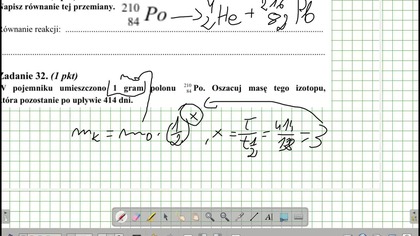 Napisz równanie tej przemiany. ²¹⁰₈₄Po → ⁴₂He + ²⁰⁶₈₂Pb
Równanie reakcji:
Zadanie 32. (1 pkt)
m₀
W pojemniku umieszczono 1 gram polonu ²¹⁰₈₄Po. Oszacuj masę tego izotopu,
która pozostanie po upływie 414 dni.
mₖ = m₀ · (1/2)ˣ , x = t/t½ = 414/138 = 3